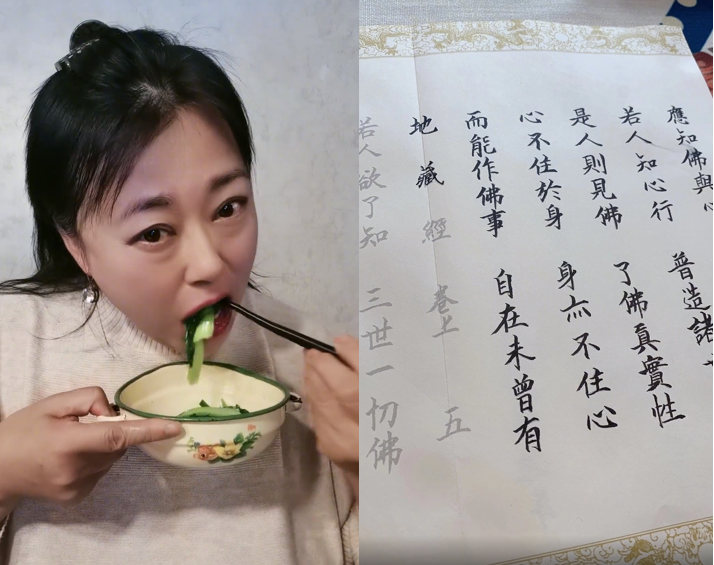 應知佛與心
若人知心行 普造諸
是人則見佛 了佛真實性
心不住於身 身亦不住心
而能作佛事 自在未曾有
地藏經 卷上 五
若人欲了知 三世一切佛